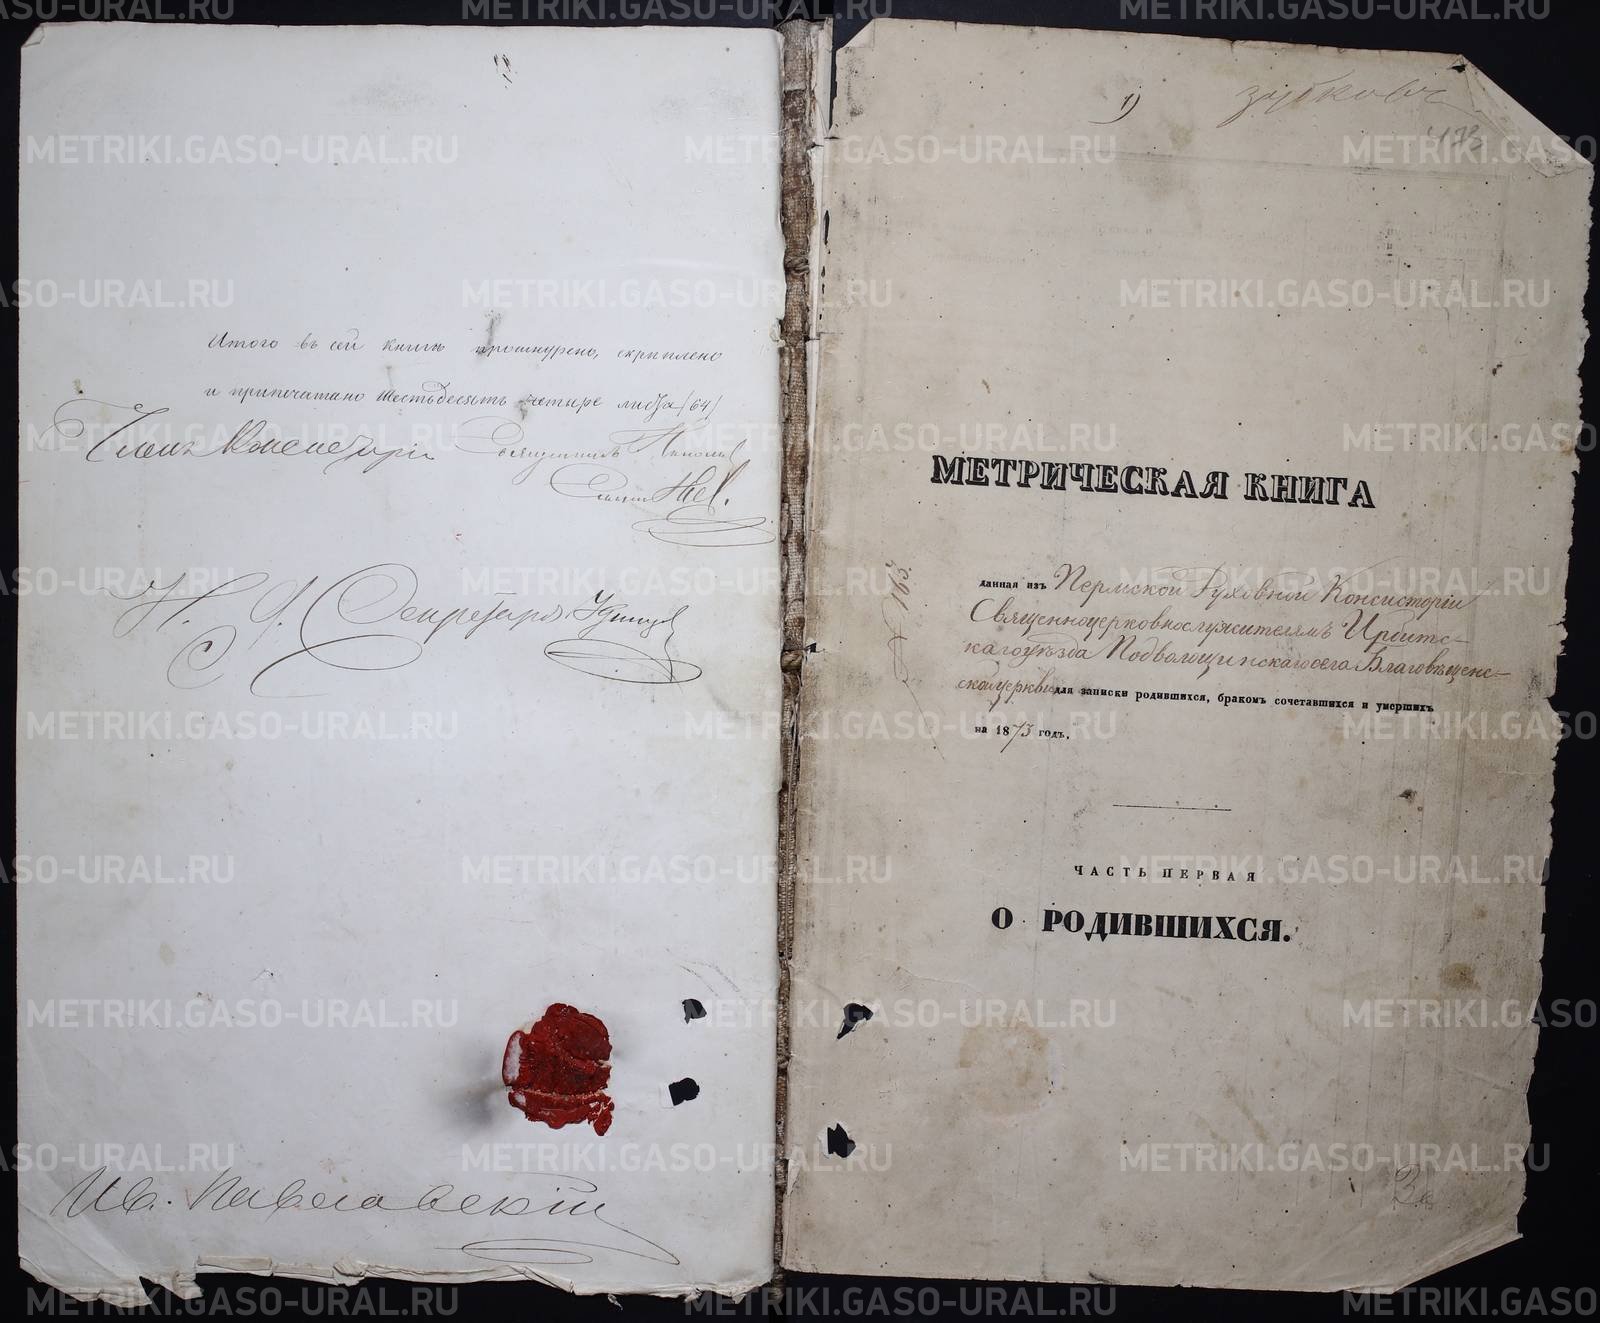 Итого въ сей книгѣ прошнурено, скрѣплено
и припечатано шестьдесятъ четыре листа (64)
Членъ Консисторіи Священникъ
Секретарь
Ив. Павловскій
1)
зубковъ
478
МЕТРИЧЕСКАЯ КНИГА
данная изъ Пермской Духовной Консисторіи
Священноцерковнослужителямъ Ирбитс-
каго уѣзда Подволошинскаго села Благовѣщенс-
кой церкви для записки родившихся, бракомъ сочетавшихся и умершихъ
на 1873 годъ.
ЧАСТЬ ПЕРВАЯ
О РОДИВШИХСЯ.
METRIKI.GASO-URAL.RU